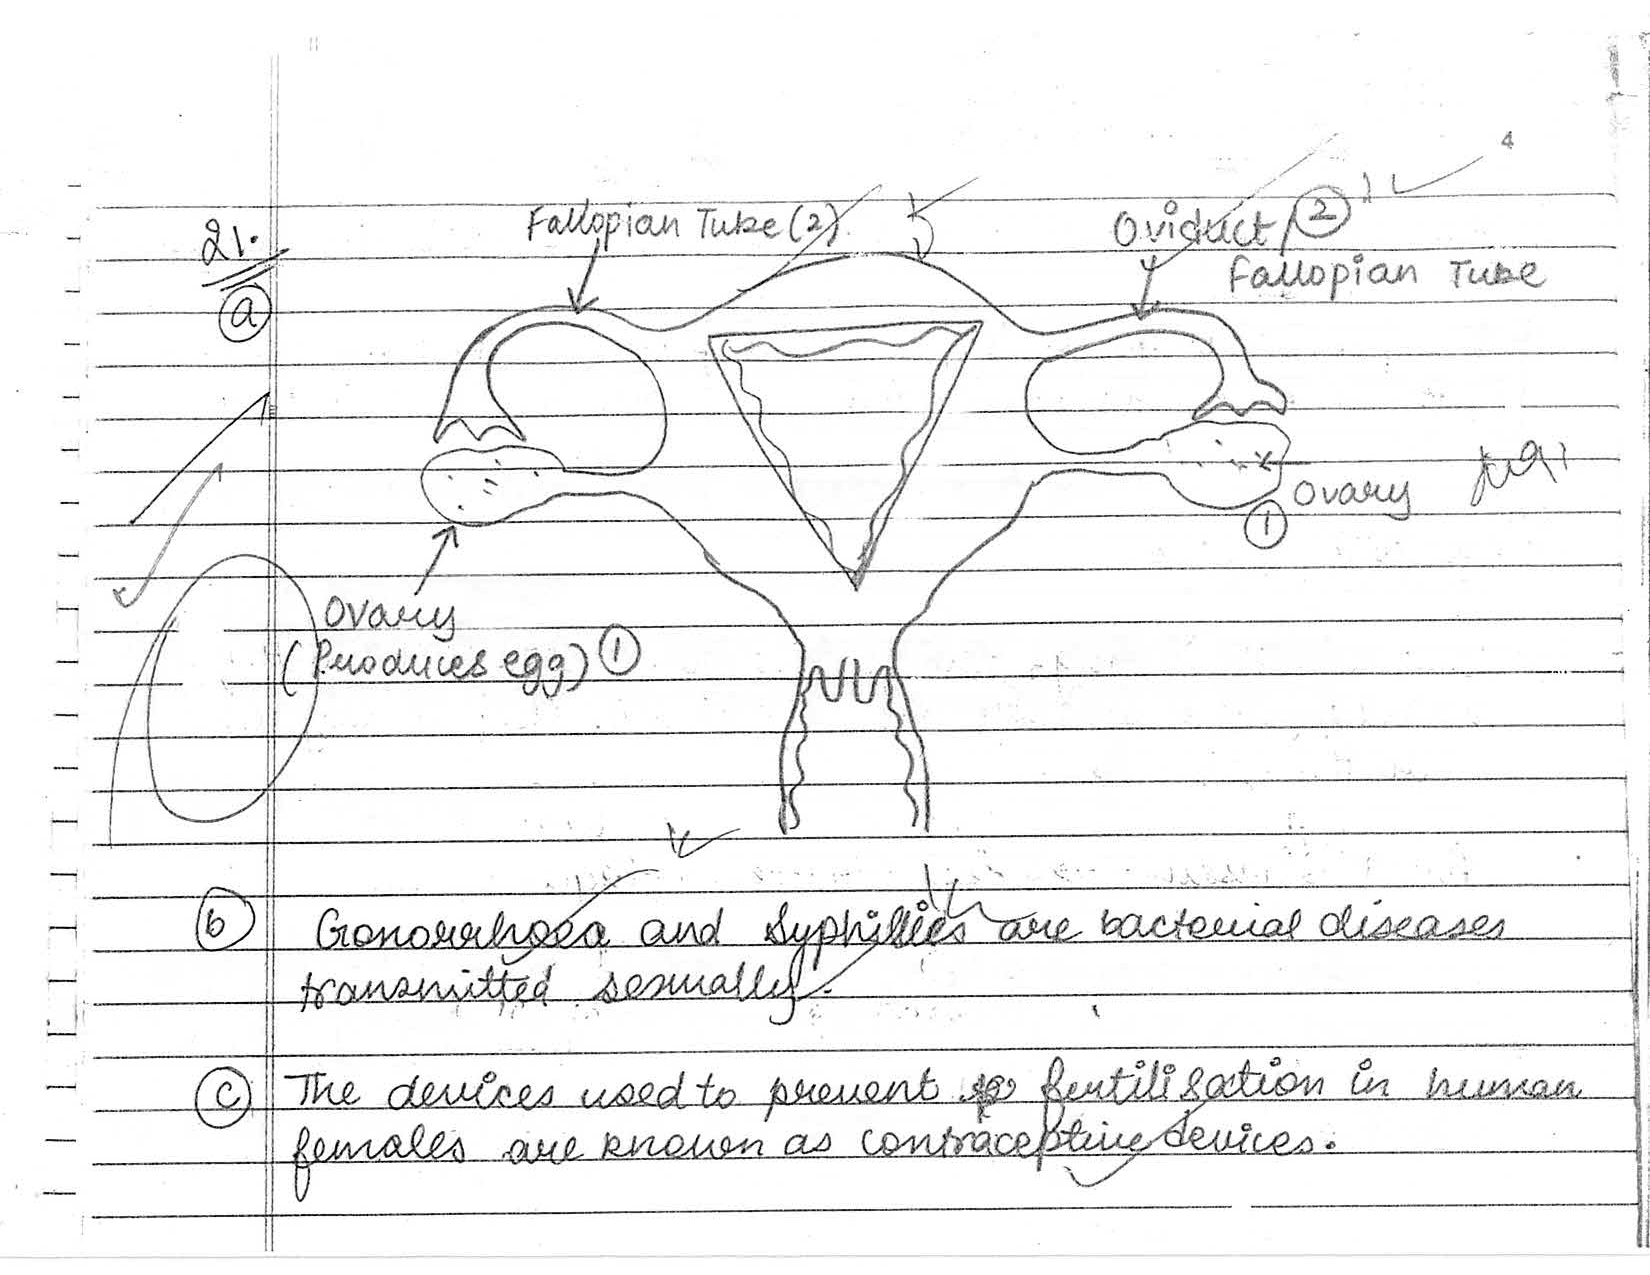 4
21.
(a)
Fallopian Tube (2)
Oviduct / (2)
Fallopian Tube
Ovary
(1)
Ovary
(Produces egg) (1)
(b) Gonorrhoea and Syphillies are bacterial diseases
transmitted sexually.
(c) The devices used to prevent fertilisation in human
females are known as contraceptive devices.